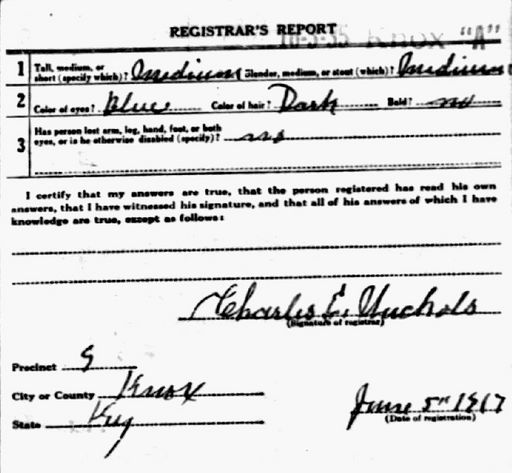 REGISTRAR'S REPORT
KNOX "A"
1 Tall, medium, or short (specify which)? Medium Slender, medium, or stout (which)? Medium
2 Color of eyes? Blue Color of hair? Dark Bald? no
3 Has person lost arm, leg, hand, foot, or both
eyes, or is he otherwise disabled (specify)? no
I certify that my answers are true, that the person registered has read his own
answers, that I have witnessed his signature, and that all of his answers of which I have
knowledge are true, except as follows:
Charles E. Nuchols
(Signature of registrar)
Precinct 9
City or County Knox
State Ky
June 5th 1917
(Date of registration)